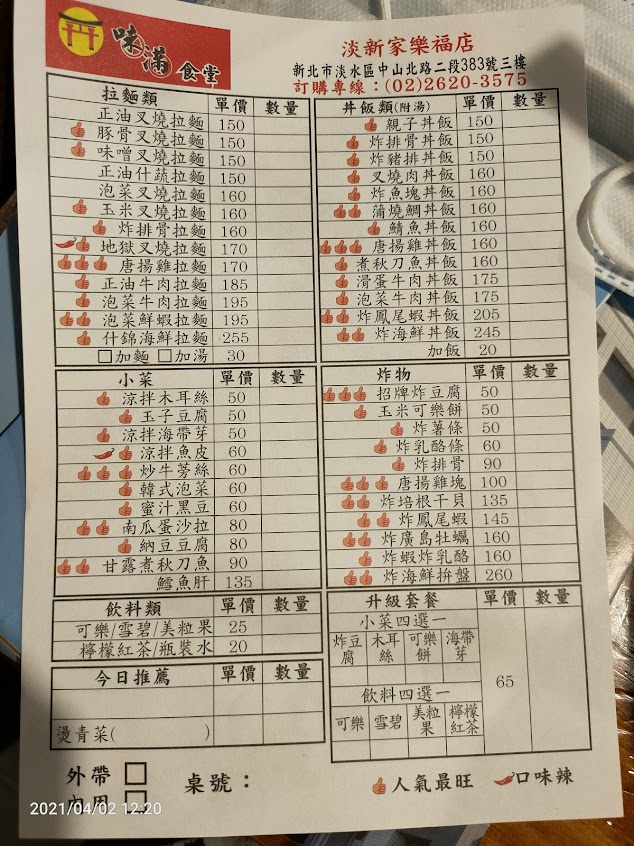 味滿食堂
淡新家樂福店
新北市淡水區中山北路二段383號三樓
訂購專線:(02)2620-3575
拉麵類 單價 數量
正油叉燒拉麵 150
豚骨叉燒拉麵 150
味噌叉燒拉麵 150
正油什蔬拉麵 150
泡菜叉燒拉麵 160
玉米叉燒拉麵 160
炸排骨拉麵 160
地獄叉燒拉麵 170
唐揚雞拉麵 170
正油牛肉拉麵 185
泡菜牛肉拉麵 195
泡菜鮮蝦拉麵 195
什錦海鮮拉麵 255
□加麵 □加湯 30
丼飯類(附湯) 單價 數量
親子丼飯 150
炸排骨丼飯 150
炸豬排丼飯 150
叉燒肉丼飯 160
炸魚塊丼飯 160
蒲燒鯛丼飯 160
鯖魚丼飯 160
唐揚雞丼飯 160
煮秋刀魚丼飯 160
滑蛋牛肉丼飯 175
泡菜牛肉丼飯 175
炸鳳尾蝦丼飯 205
炸海鮮丼飯 245
加飯 20
小菜 單價 數量
涼拌木耳絲 50
玉子豆腐 50
涼拌海帶芽 50
涼拌魚皮 60
炒牛蒡絲 60
韓式泡菜 60
蜜汁黑豆 60
南瓜蛋沙拉 80
納豆豆腐 80
甘露煮秋刀魚 90
鱈魚肝 135
炸物 單價 數量
招牌炸豆腐 50
玉米可樂餅 50
炸薯條 50
炸乳酪條 60
炸排骨 90
唐揚雞塊 100
炸培根干貝 135
炸鳳尾蝦 145
炸廣島牡蠣 160
炸蝦炸乳酪 160
炸海鮮拚盤 260
飲料類 單價 數量
可樂/雪碧/美粒果 25
檸檬紅茶/瓶裝水 20
今日推薦 單價 數量
燙青菜( )
升級套餐 單價 數量
小菜四選一
炸豆腐 木耳絲 可樂餅 海帶芽
65
飲料四選一
可樂 雪碧 美粒果 檸檬紅茶
外帶 □
內用 □
桌號:
人氣最旺 口味辣
2021/04/02 12:20